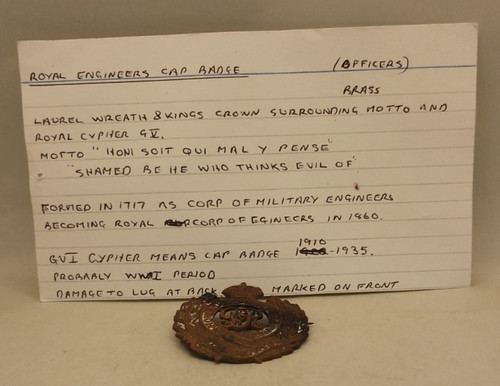 ROYAL ENGINEERS CAP BADGE (OFFICERS)
BRASS
LAUREL WREATH & KINGS CROWN SURROUNDING MOTTO AND
ROYAL CYPHER GV.
MOTTO "HONI SOIT QUI MAL Y PENSE"
"SHAMED BE HE WHO THINKS EVIL OF"
FORMED IN 1717 AS CORP OF MILITARY ENGINEERS
BECOMING ROYAL CORP OF EGINEERS IN 1860.
GVI CYPHER MEANS CAP BADGE 1910 -1935.
PROBABLY WWI PERIOD
DAMAGE TO LUG AT BACK MARKED ON FRONT